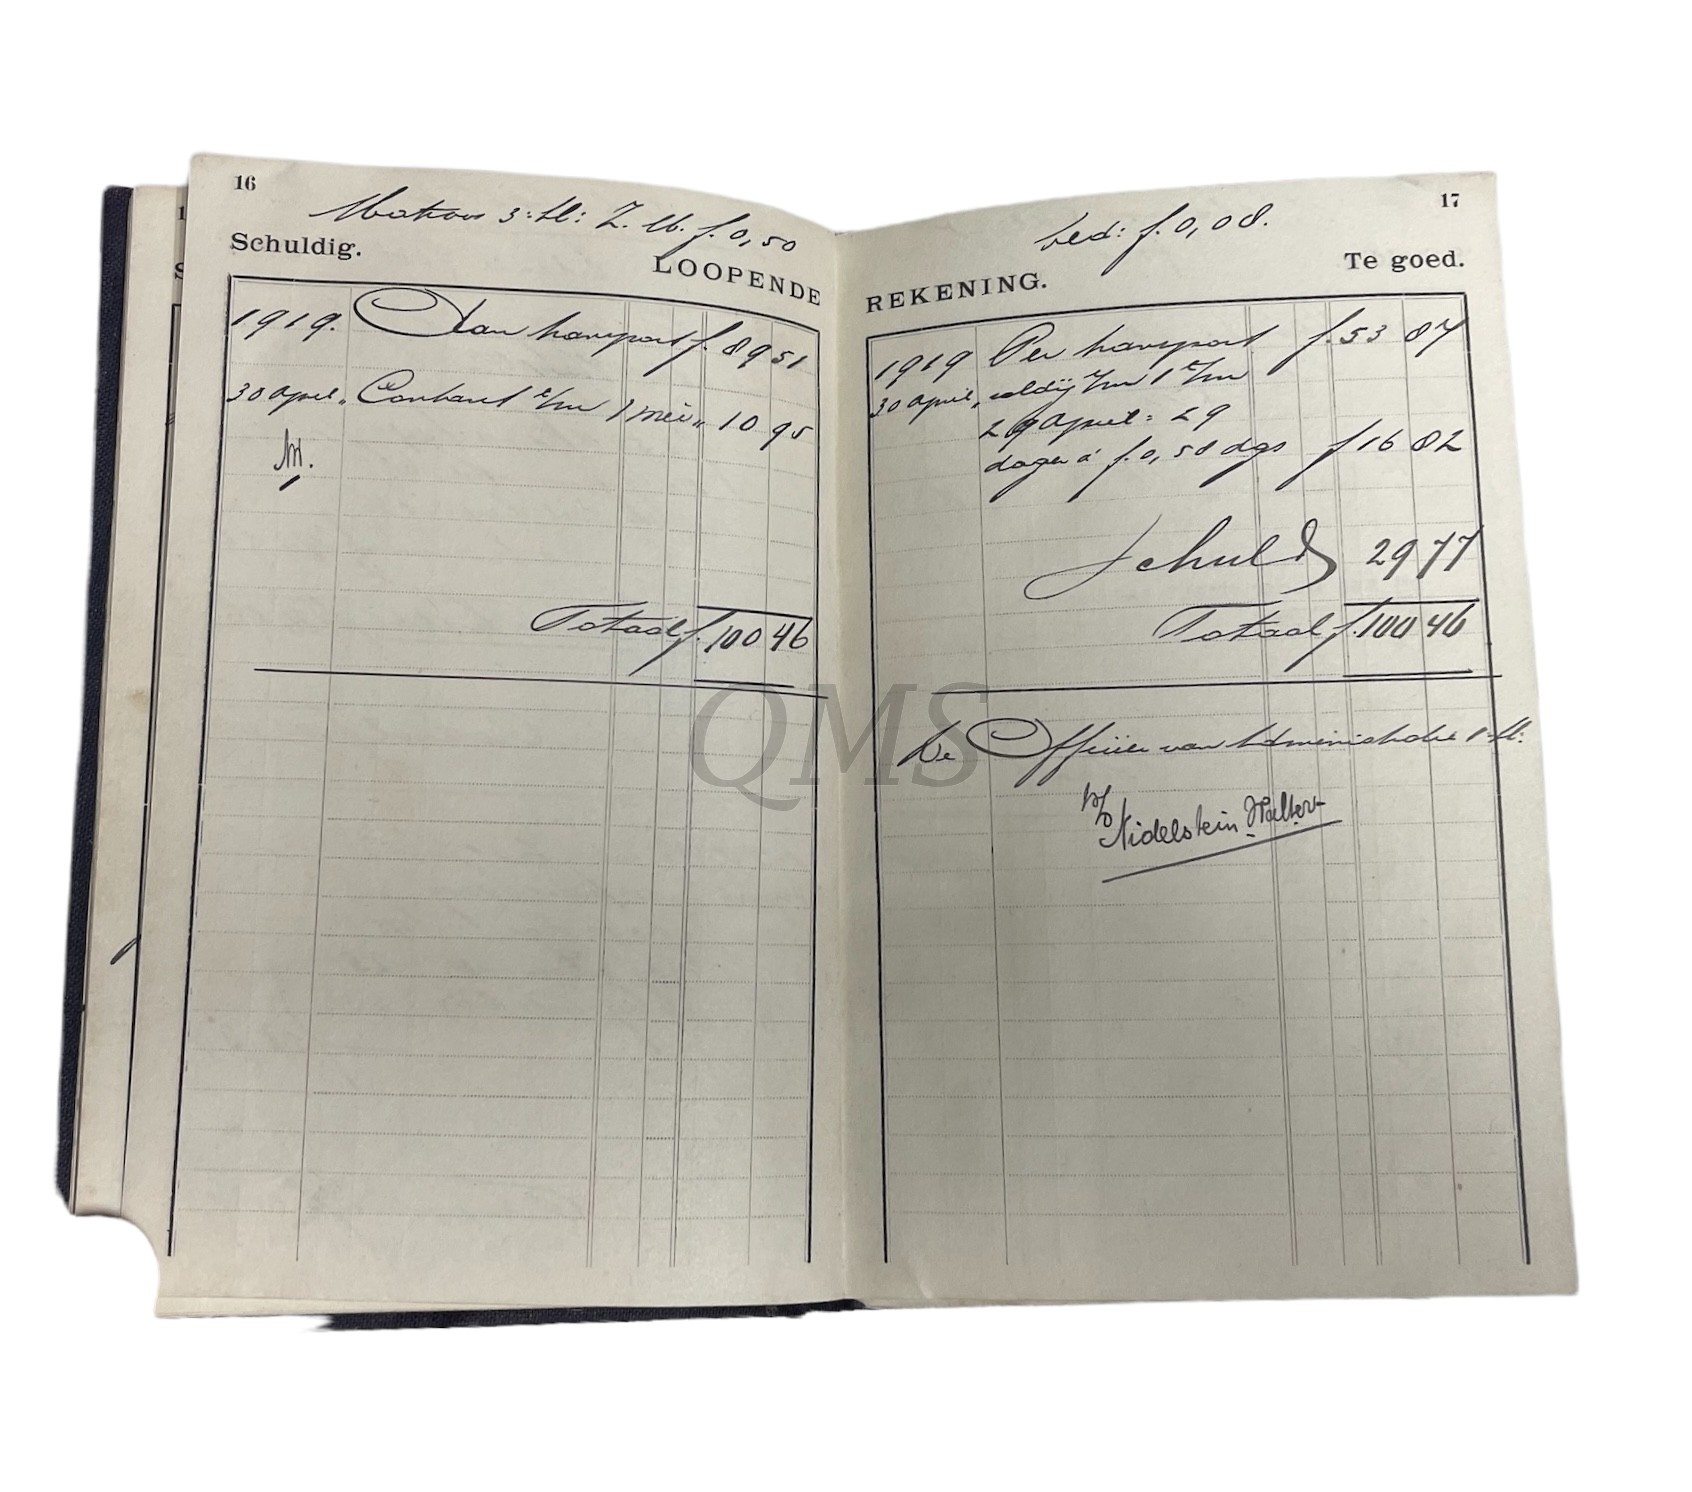 16
Matroos 3: kl: Z. M. f. 0,50
Schuldig.
LOOPENDE
1919. Aan transport f. 89 51
30 april „ Contract t/m 1 mei „ 10 95
M.
Totaal f. 100 46
17
bed: f. 0,08.
Te goed.
REKENING.
1919 Per transport f. 53 87
30 april, soldij v/m 1 t/m
29 April = 29
dagen á f. 0,58 dgs f 16 82
Schuld 29 77
Totaal f. 100 46
De Officier van Administratie 1e kl:
b/o
Nidelstein Walter
QMS